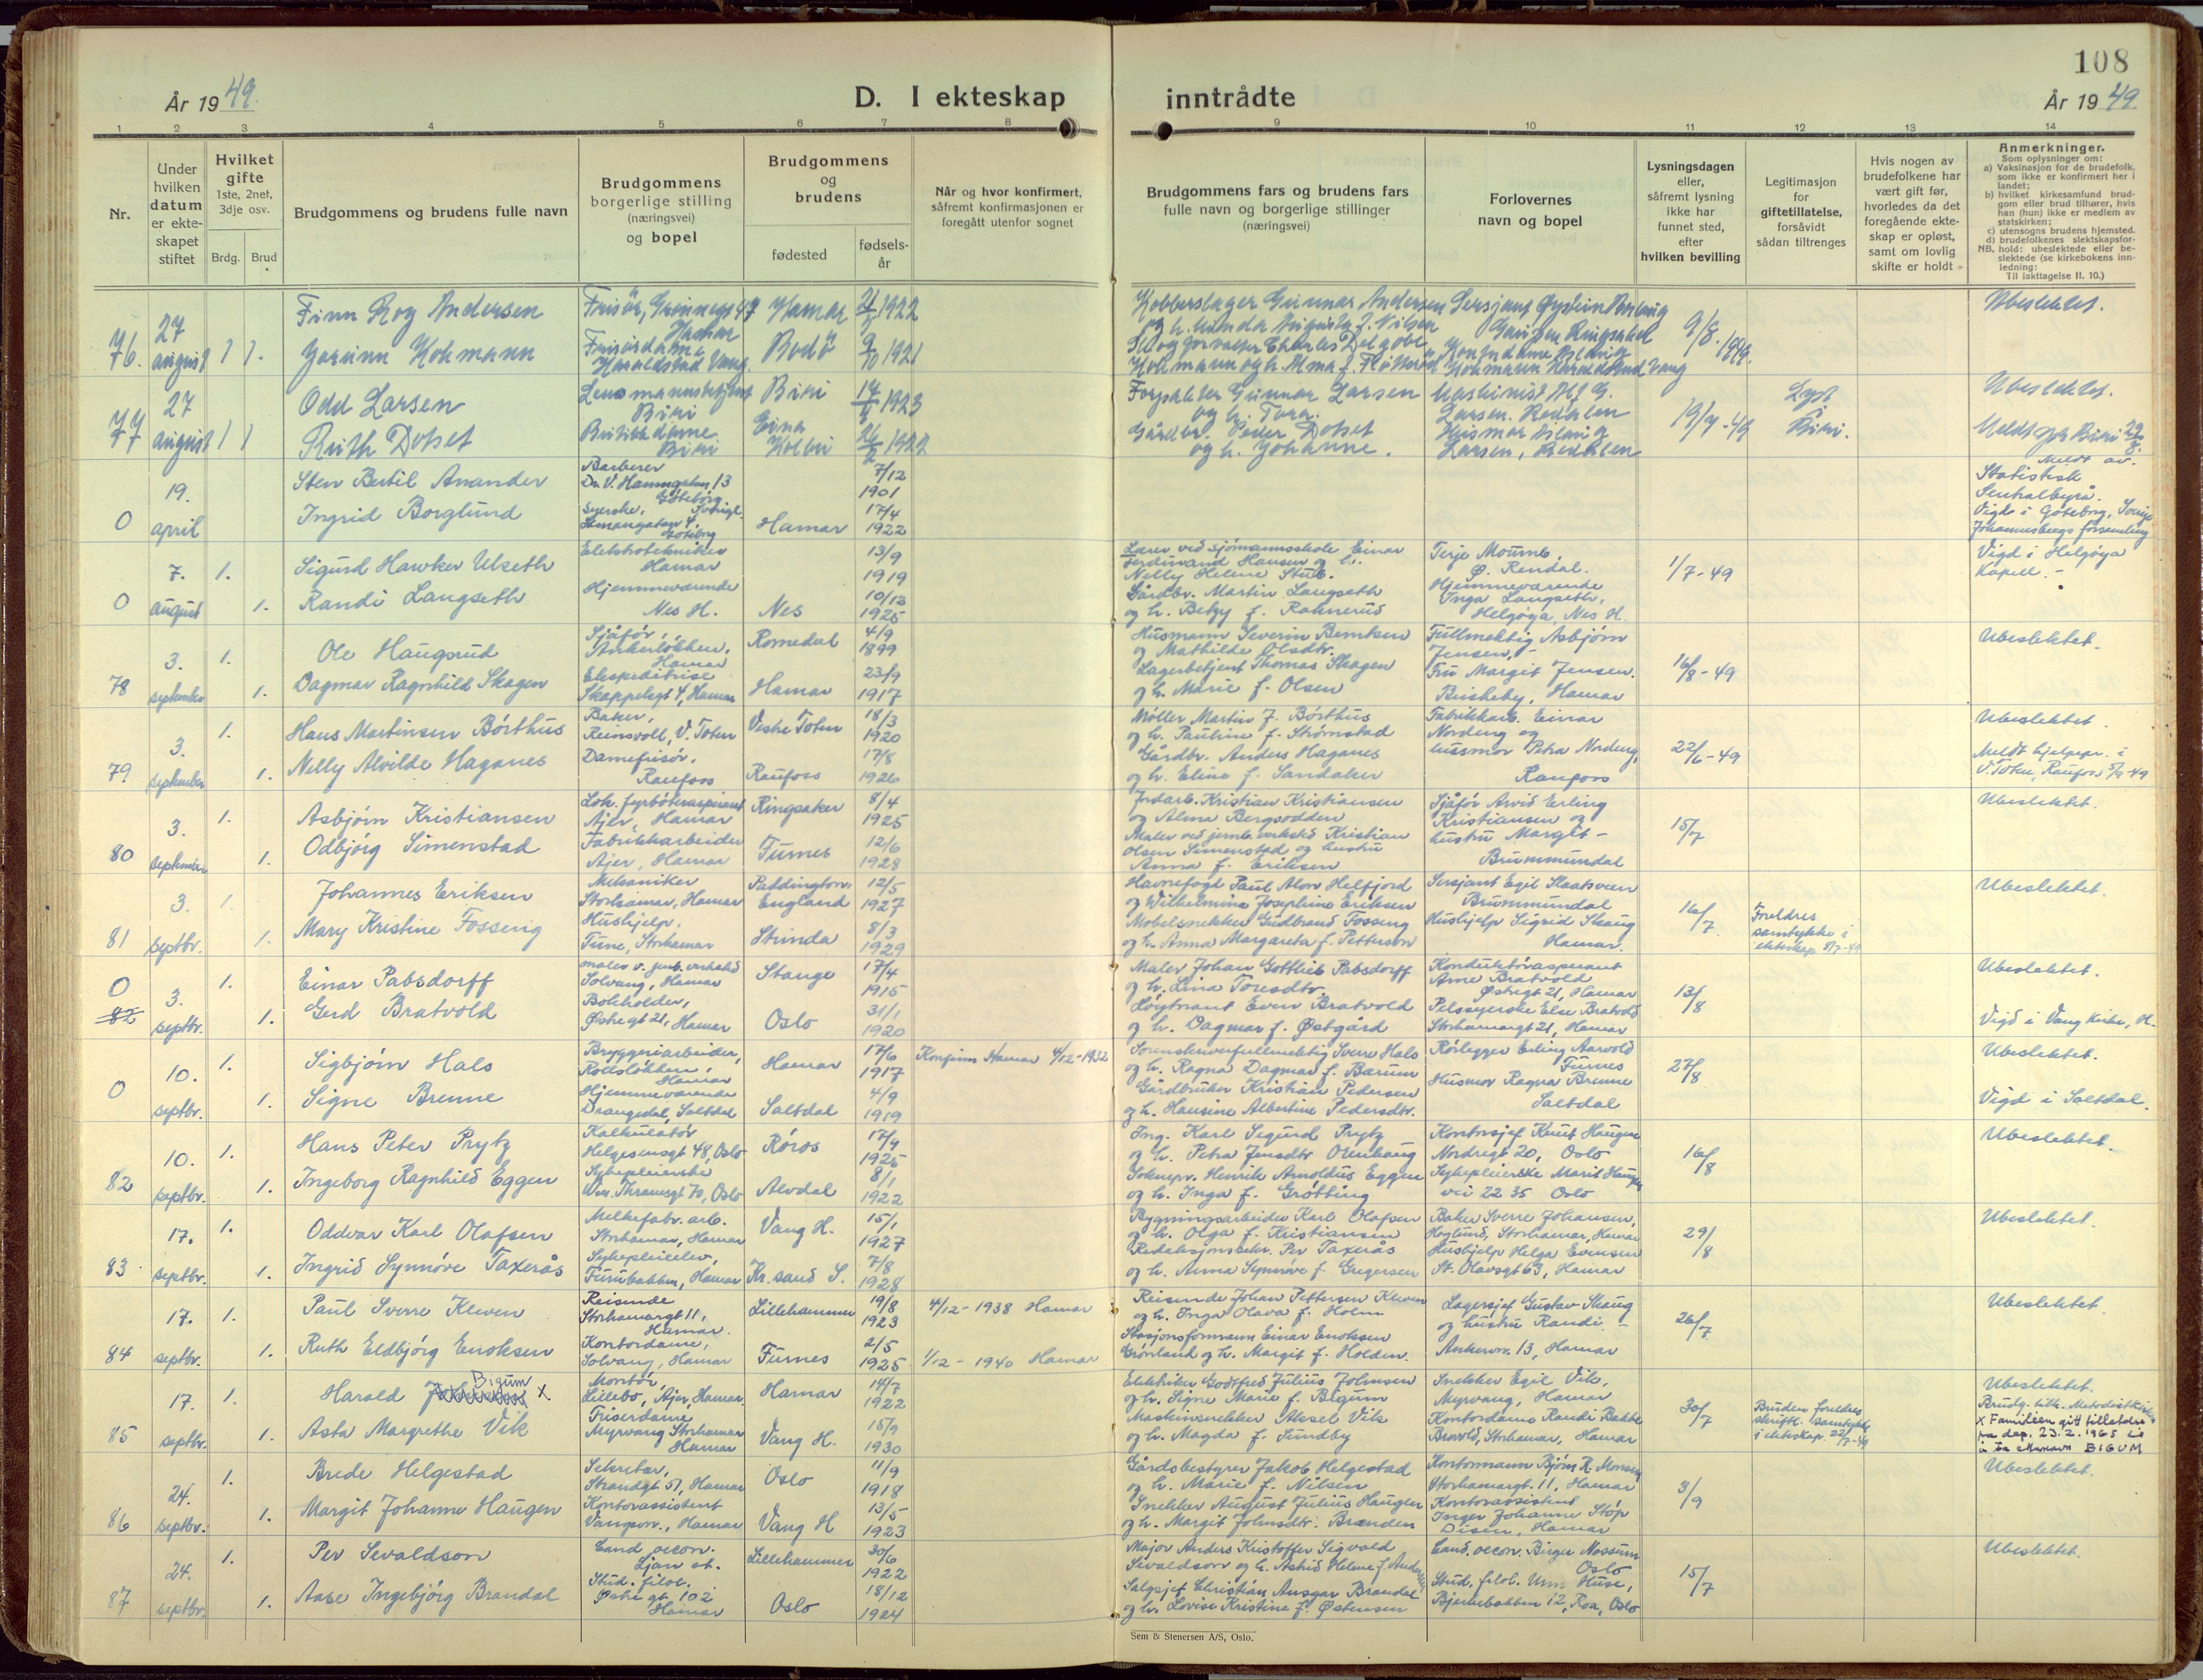 108
År 1949.
D. I ekteskap inntrådte
År 1949
1 2 3 4 5 6 7 8 9 10 11 12 13 14
Nr.
Under hvilken datum er ekteskapet stiftet
Hvilket gifte
1ste, 2net, 3dje osv.
Brdg. Brud
Brudgommens og brudens fulle navn
Brudgommens borgerlige stilling (næringsvei) og bopel
Brudgommens og brudens
fødested
fødselsår
Når og hvor konfirmert, såfremt konfirmasjonen er foregått utenfor sognet
Brudgommens fars og brudens fars fulle navn og borgerlige stillinger (næringsvei)
Forlovernes navn og bopel
Lysningsdagen eller, såfremt lysning ikke har funnet sted, efter hvilken bevilling
Legitimasjon for giftetillatelse, forsåvidt sådan tiltrenges
Hvis nogen av brudefolkene har vært gift før, hvorledes da det foregående ekteskap er opløst, samt om lovlig skifte er holdt
Anmerkninger.
Som oplysninger om:
a) Vaksinasjon for de brudefolk, som ikke er konfirmert her i landet;
b) hvilket kirkesamfund brudgom eller brud tilhører, hvis han (hun) ikke er medlem av statskirken;
c) utensogns brudens hjemsted.
d) brudefolkenes slektskapsforhold: ubeslektede eller beslektede (se kirkebokens innledning:
NB. Til iakttagelse II. 10.)
76. 27 august 1 1.
Finn Roy Andersen
Frisør, Grønnegt 47 Hamar
Hamar 1922
Kobberslager Gunnar Andersen
9/8. 1949.
Ubeslektet.
Kohmann
Frisørdame
Bodö 9/10 1921
77 27 august 1 1
Odd Larsen
Lensmannsbetjent Biri
Biri 1923
Forpakter Gunnar Larsen og h. Tora.
Maskinist
Larsen. Redalen
19/7-49
Lyst i Biri.
Ubeslektet.
Ruth Dotset
Butikkdame Biri
Eina Kolbu 1922
Gårdbr. Peder Dotset og h. Johanne.
Husmor
Larsen, Redalen
Meldt Biri
0 19. april
Sten Bertil Anander
Barberer
Göteborg
7/12 1901
Meldt av. Statistisk Sentralbyrå.
Vigd i Göteborg,
Johannesbergs forsamling
Ingrid Borglund
Syerske,
Göteborg
Hamar 17/4 1922
0 7. august 1. 1.
Sigurd Hawker Ulseth
Elektrotekniker Hamar
13/9 1919
Lærer ved sjømannsskole Einar Ferdinand Hansen og h. Nelly Helene Stub.
Terje Moumb,
Ø. Rendal.
1/7-49
Vigd i Helgøya Kapell.-
Randi Langseth
Hjemmeværende Nes H.
Nes 10/12 1925
Gårdbr. Martin Langseth og h. Betzy f. Rohnerud
Hjemmeværende Inga Langseth, Helgøya, Nes H.
78 3. september 1. 1.
Ole Haugsrud
Sjåfør, Ankerløkken, Hamar
Romedal 4/9 1899
Husmann Severin Berntsen og Mathilde Olsdtr.
Fullmektig Asbjørn Jensen,-
16/8-49
Ubeslektet.
Dagmar Ragnhild Skagen
Ekspeditrise Skappelsgt 4, Hamar
Hamar 23/9 1917
Lagerbetjent Thomas Skagen og h. Marie f. Olsen
Fru Margit Jensen. Briskeby, Hamar
79 3. september 1. 1.
Hans Martinsen Børthus
Baker, Reinsvoll, V. Toten
Vestre Toten 18/3 1920
Møller Martin J. Børthus og h. Pauline f. Strømstad
Fabrikkarb. Einar Nordeng og
22/6-49
Ubeslektet.
Nelly Alvilde Haganes
Damefrisør, Raufoss
Raufoss 17/8 1926
Gårdbr. Anders Haganes og h. Eline f. Sandaker
husmor Petra Nordeng, Raufoss
Meldt hjelpepr. i V. Toten, Raufoss 5/9-49
80 3. september 1. 1.
Asbjørn Kristiansen
Lok. fyrbøteraspirant Ajer, Hamar
Ringsaker 8/4 1925
Jordarb. Kristian Kristiansen og Alma Bergsodden
Sjåfør Arvid Erling Kristiansen og hustru Margit- Brummundal
15/7
Ubeslektet.
Odbjørg Simenstad
Fabrikkarbeider Ajer, Hamar
Furnes 12/6 1928
Maler ved jernb. verksted Kristian Olsen Simenstad og hustru Anna f. Eriksen
81 3. septbr. 1. 1.
Johannes Eriksen
Mekaniker Storhamar, Hamar
Paddington, England 12/5 1927
Havnefogd Paul Alon Helfjord og Wilhelmine Josephine Eriksen
Sersjant Egil Slaatsveen Brummundal
16/7
Foreldres samtykke i ekteskap 8/7-49
Ubeslektet.
Mary Kristine Fosseng
Hushjelp, Tune, Storhamar
Strinda 8/3 1929
Møbelsnekker Gudbrand Fosseng og h. Anna Margareta f. Petterson
Hushjelp Sigrid Skaug Hamar.
0 82 3. septbr. 1. 1.
Einar Pabsdorff
maler v. jernb. verksted Solvang, Hamar
Stange 17/4 1915
Maler Johan Gottlieb Pabsdorff og h. Lina Toresdtr.
Konduktøraspirant Arne Bratvold Østregt 21, Hamar
13/8
Ubeslektet.
Gerd Bratvold
Bokholder, Østregt 21, Hamar
Oslo 31/1 1920
Løytnant Even Bratvold og h. Dagmar f. Østgård
Pelssyerske Else Bratvold Storhamargt 21, Hamar
Vigd i Vang kirke, H.
0 10. septbr. 1. 1.
Sigbjørn Hals
Bryggeriarbeider, Hamar
Hamar 17/6 1917
Konfirm Hamar 4/12-1932
Sorenskriverfullmektig Sverre Hals og h. Ragna Dagmar f. Bærum
Rørlegger Erling Aarvold Furnes
27/8
Ubeslektet.
Signe Brenne
Hjemmeværende Drangedal, Saltdal
Saltdal 4/9 1919
Gårdbruker Kristian Pedersen og h. Hansine Albertine Pedersdtr.
Husmor Ragna Brenne Saltdal
Vigd i Saltdal.
82 10. septbr. 1. 1.
Hans Peter Prytz
Kalkulatør Helgesensgt 48, Oslo
Røros 1925
Ing. Karl Sigurd Prytz og h. Petra Jensdtr
Kontorsjef Knut Haugen Nordregt 20, Oslo
16/8
Ubeslektet.
Ingeborg Ragnhild Eggen
Sykepleierske Wm. Thranesgt 70, Oslo
Alvdal 8/1 1922
Soknepr. Henrik Arnoldus Eggen og h. Inga f. Grøtting
Sykepleierske Marit Haugen vei 22 35 Oslo
83 17. septbr. 1. 1.
Oddvar Karl Olafsen
Melkefabr. arb. Storhamar, Hamar
Vang H. 15/1 1927
Bygningsarbeider Karl Olafsen og h. Olga f. Kristiansen
Baker Sverre Johansen, Høglund, Storhamar, Hamar
29/8
Ubeslektet.
Ingrid Synnøve Taxerås
Sykepleieelev, Furubakken, Hamar
Kr.sand S. 7/8 1928
Redaksjonssekr. Per Taxerås og h. Anna Synnøve f. Gregersen
Hushjelp Helga Evensen St. Olavsgt 63, Hamar
84 17. septbr. 1. 1.
Paul Sverre Kleven
Reisende Storhamargt 11, Hamar.
Lillehammer 19/8 1923
4/12-1938 Hamar
Reisende Johan Pettersen Kleven og h. Inga Olava f. Holm
Lagersjef Gustav Skaug og hustru Randi.-
26/7
Ubeslektet.
Ruth Eldbjørg Enoksen
Kontordame, Solvang, Hamar
Furnes 2/5 1925
1/12-1940 Hamar
Stasjonsformann Einar Enoksen Grønland og h. Margit f. Holden.
Ankerv. 13, Hamar
85 17. septbr. 1. 1.
Harald Bigum x
Montør, Lillebo, Ajer, Hamar.
Hamar 14/7 1922
Elektriker Godtfred Julius Johnsen og h. Signe Marie f. Bigum
Snekker Egil Vik, Myrvang, Hamar
30/7
Brudens foreldres skriftl. samtykke i ekteskap 22/7-49
Ubeslektet.
Brudg. tilh. Metodistkirken
x Familien gitt tillatelse fra dep. 23.2.1965 til å ta etternavn BIGUM
Asta Margrethe Vik
Friserdame Myrvang Storhamar Hamar
Vang H. 15/9 1930
Maskinsnekker Aksel Vik og h. Magda f. Sundby
Kontordame Randi Bakke Storhamar, Hamar
86 24. septbr. 1. 1.
Brede Helgestad
Sekretær, Strandgt 51, Hamar
Oslo 11/9 1918
Gårdsbestyrer Jakob Helgestad og h. Marie f. Nilsen
Kontormann Bjørn R. Monsen Storhamargt. 11, Hamar
3/9
Ubeslektet.
Margit Johanne Haugen
Kontorassistent Vangsv., Hamar
Vang H 13/5 1923
Snekker August Julius Haugen og h. Margit Johnsdtr. Brænden
Kontorassistent Inger Johanne Støp Disen, Hamar
87 24. septbr. 1. 1.
Per Sevaldson
Cand. oecon. Ljan st.
Lillehammer 30/6 1922
Major Anders Kristoffer Sigvald Sevaldson og h. Astrid Helene f. Andersen
Cand. oecon. Birger Mossum Oslo
15/7
Ubeslektet.
Aase Ingebjørg Brandal
Stud. filol. Østregt. 102 Hamar
Oslo 18/12 1924
Salgsjef Christian Ansgar Brandal og h. Lovise Kristine f. Østensen
Stud. filol. Unn Huse, Bjerkebakken 12, Roa, Oslo
Sem & Stenersen A/S, Oslo.